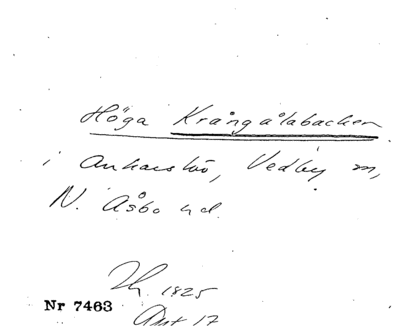 Höga Krångålabacken
i Ankarslöv, Vedby sn,
N. Åsbo hd.
1825
Nr 7463 Akt 17